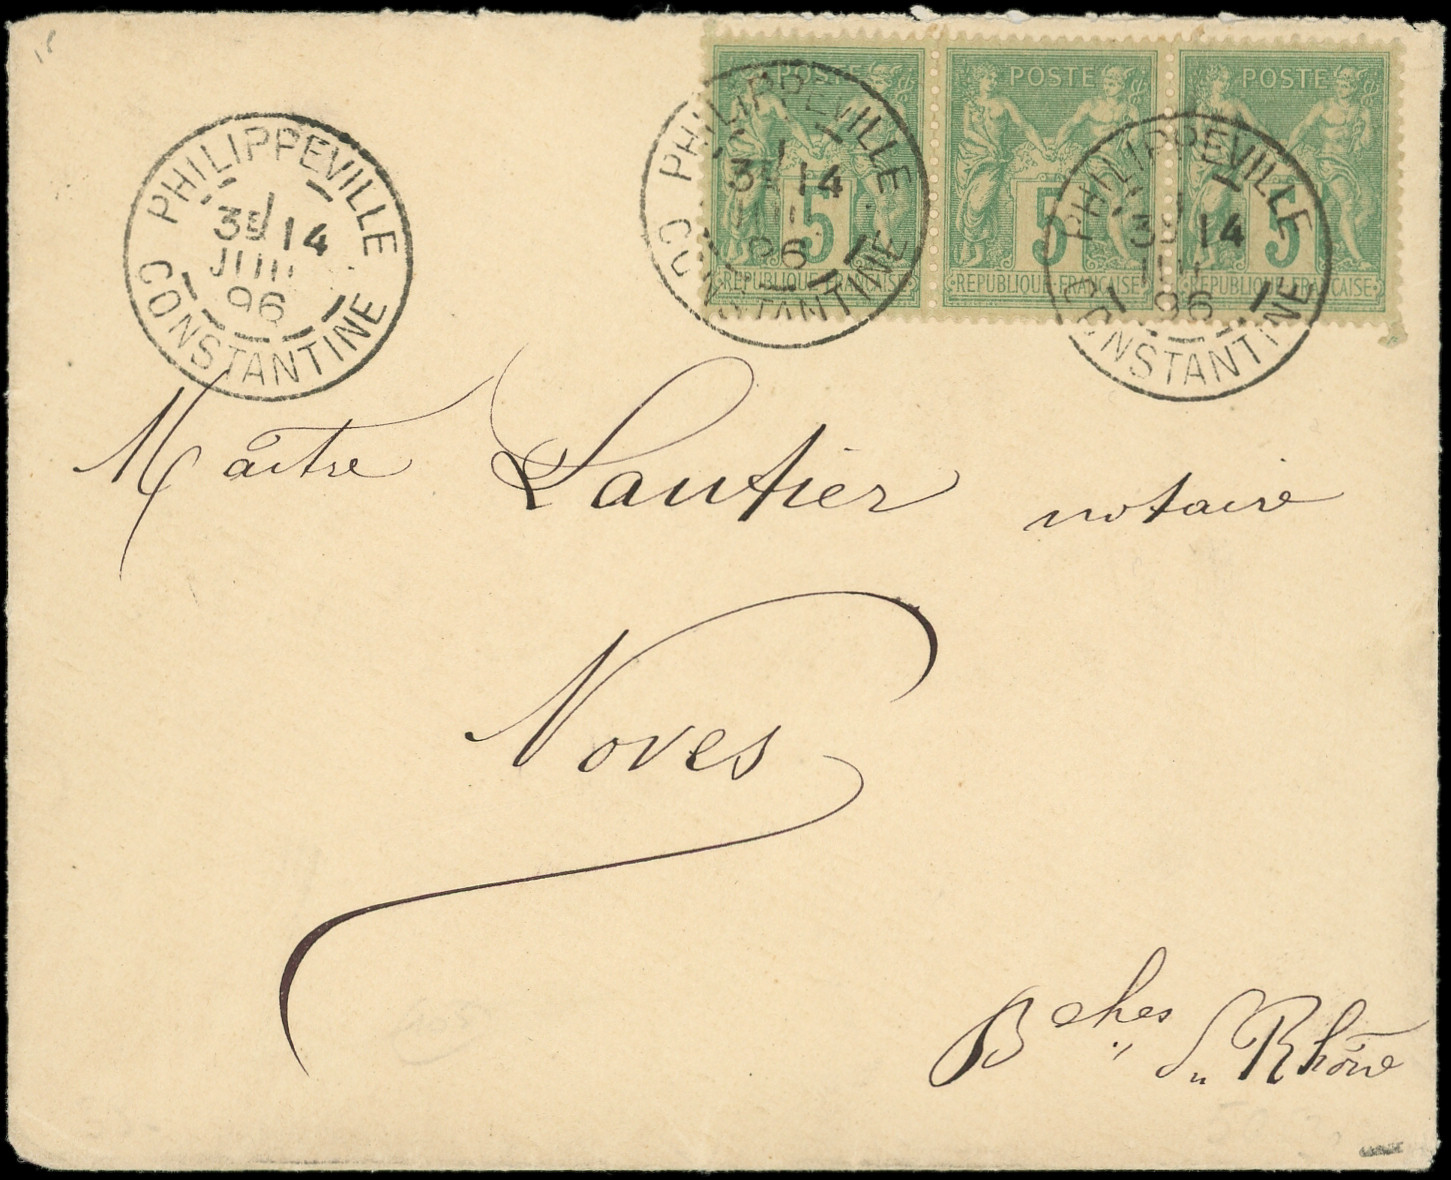 POSTE POSTE POSTE
5 5 5
REPUBLIQUE FRANÇAISE REPUBLIQUE FRANÇAISE REPUBLIQUE FRANÇAISE
PHILIPPEVILLE
3E 14
96
CONSTANTINE
PHILIPPEVILLE
3E 14
96
CONSTANTINE
PHILIPPEVILLE
3E 14
96
CONSTANTINE
Maître Lautier notaire
Noves
Bches du Rhône